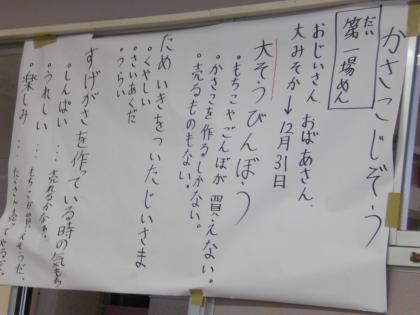 かさこじぞう
だい
第一場めん
おじいさん おばあさん、
大みそか→12月31日
大そうびんぼう
・もちこやごんぼが買えない。
・かさこを作るしかない。
・売るものもない。
ためいきをついたじいさま
・くやしい
・さいあくだ
・つらい
すげがさを作っている時の気もち
・しんぱい … 売れるかなあ。
・うれしい … もちこが買えそうだ。
・楽しみ …